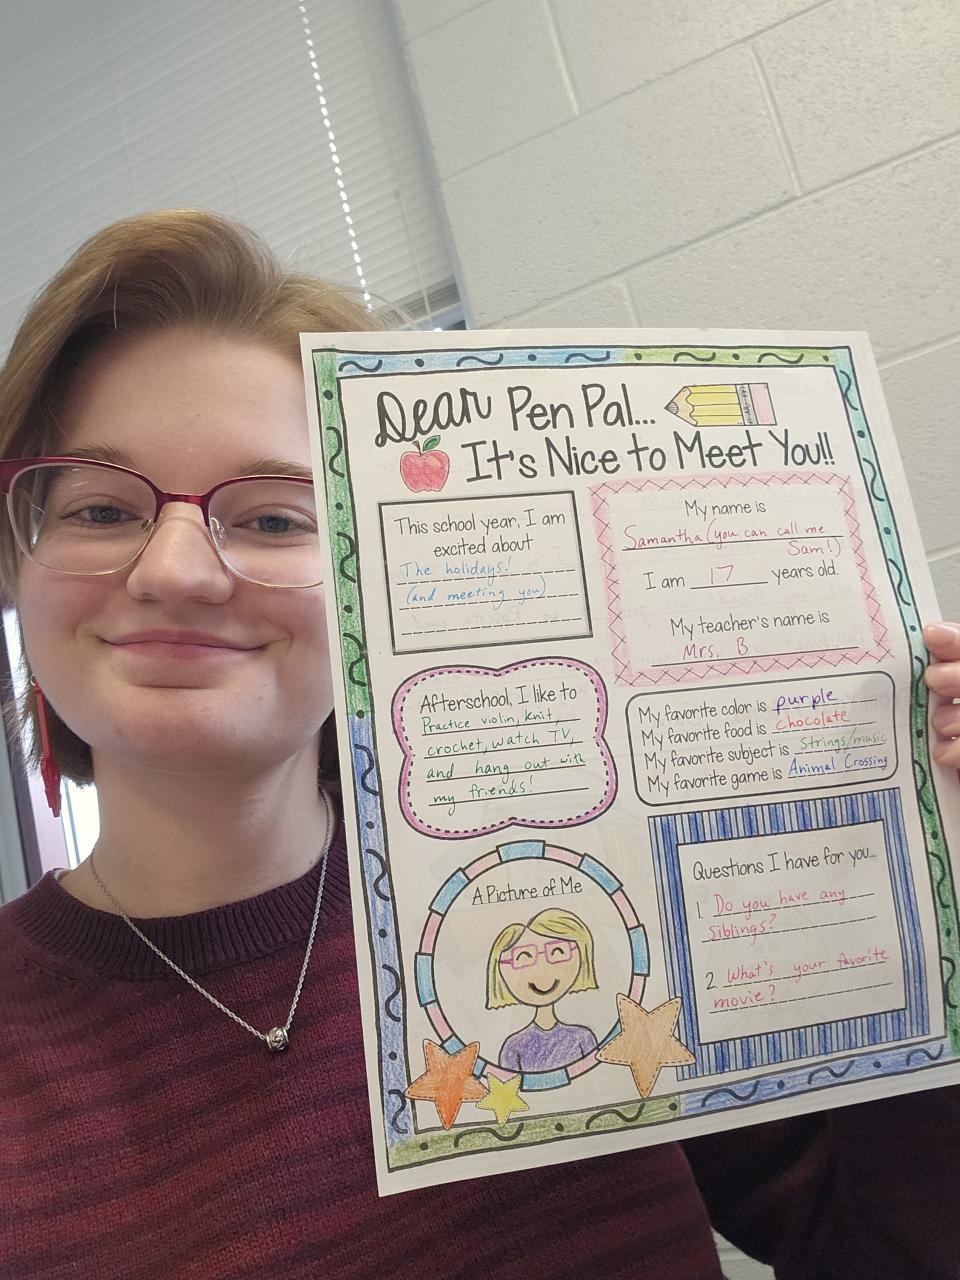 Dear Pen Pal...
It's Nice to Meet You!!
This school year, I am
excited about
The holidays!
(and meeting you)
My name is
Samantha (you can call me
Sam!)
I am 17 years old.
My teacher's name is
Mrs. B
Afterschool, I like to
Practice violin, knit,
crochet, watch TV,
and hang out with
my friends!
My favorite color is purple
My favorite food is chocolate
My favorite subject is strings/music
My favorite game is Animal Crossing
A Picture of Me
Questions I have for you...
1. Do you have any
siblings?
2. What's your favorite
movie?